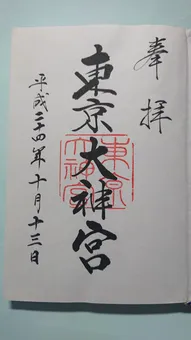 奉拝
東京大神宮
東京大神宮
平成二十四年十月十三日